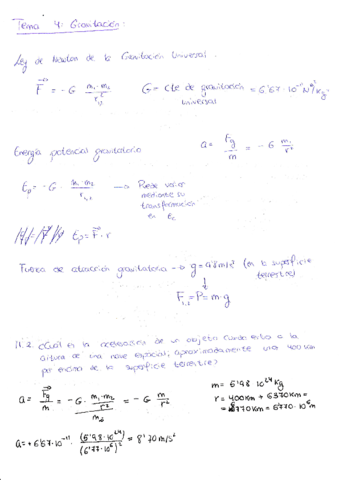 Tema 4: Gravitación:
Ley de Newton de la Gravitación Universal:
F = -G m₁·m₂ / r² G = Cte de gravitación universal = 6'67·10⁻¹¹ N·m²/kg²
Energía potencial gravitatoria a = Fg/m = -G m/r²
Ep = -G · m₁·m₂ / r₁,₂ → Puede valor
mediante su
transformación
en Ec
Ep = F · r
Fuerza de atracción gravitatoria → g = 9'8 m/s² (en la superficie
terrestre)
F₁,₂ = P = m·g
11.2. ¿Cuál es la aceleración de un objeto cuando está a la
altura de una nave espacial, aproximadamente unos 400 km
por encima de la superficie terrestre?
a = Fg/m = -G · (m₁·m₂/r²)/m₂ = -G m/r²
m = 5'98·10²⁴ kg
r = 400km + 6370km =
= 6770km = 6770·10³ m
a = +6'67·10⁻¹¹ · (5'98·10²⁴)/(6'77·10⁶)² = 8'70 m/s²